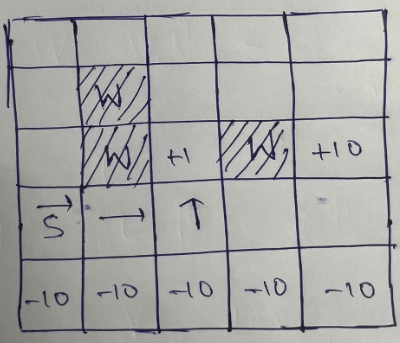 W
W +1 W +10
S → ↑
-10 -10 -10 -10 -10